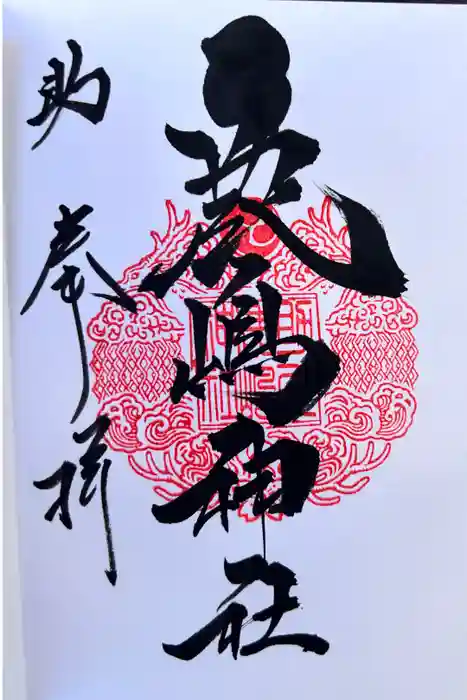 嚴嶋神社
助 奉拝